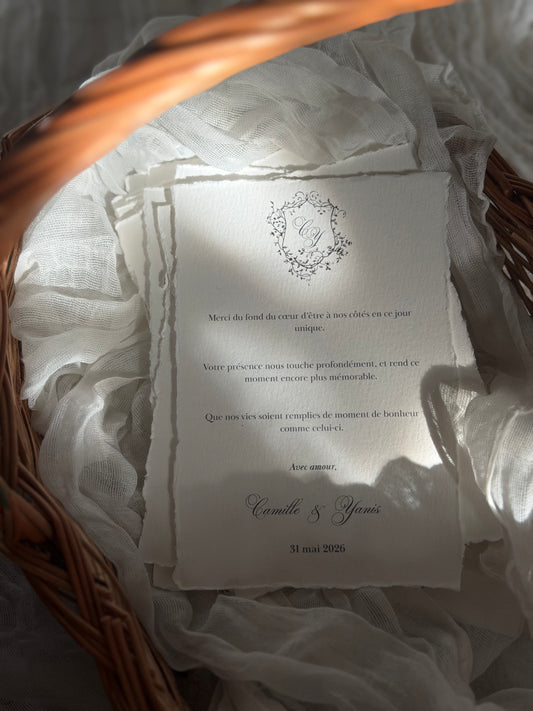 CY
Merci du fond du cœur d'être à nos côtés en ce jour
unique.
Votre présence nous touche profondément, et rend ce
moment encore plus mémorable.
Que nos vies soient remplies de moment de bonheur
comme celui-ci.
Avec amour,
Camille & Yanis
31 mai 2026